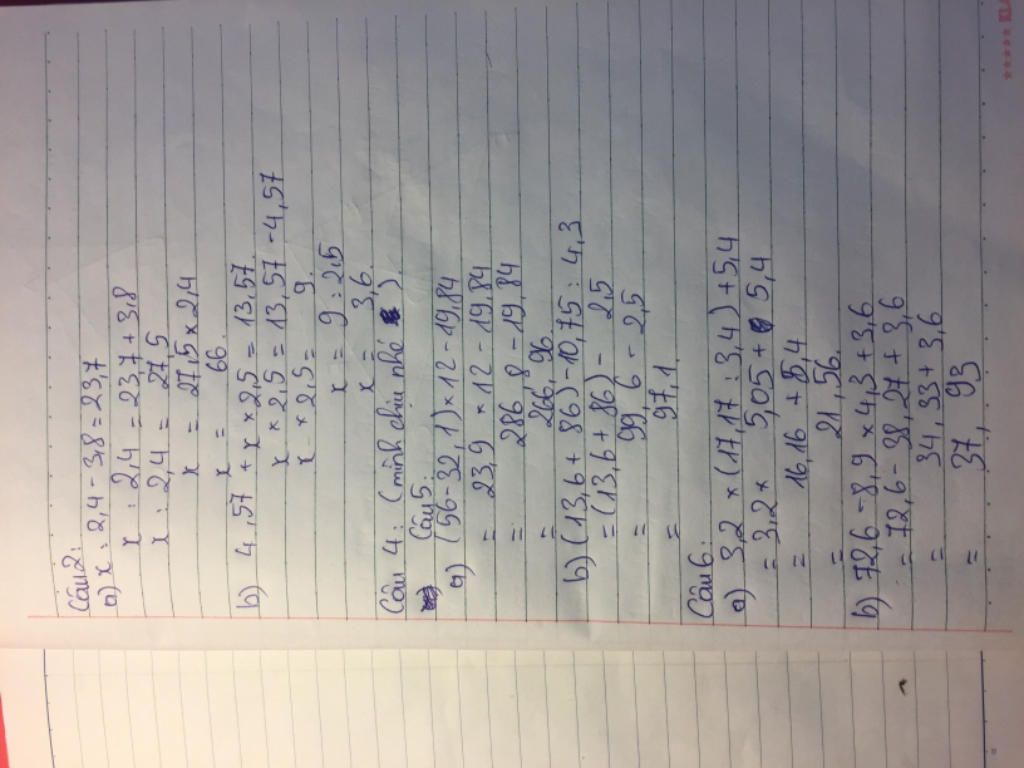 Câu 2:
a) x : 2,4 - 3,8 = 23,7
x : 2,4 = 23,7 + 3,8
x : 2,4 = 27,5
x = 27,5 x 2,4
x = 66.
b) 4,57 + x x 2,5 = 13,57
x x 2,5 = 13,57 - 4,57
x x 2,5 = 9
x = 9 : 2,5
x = 3,6
Câu 4: (mình chịu nhé )
Câu 5:
a) (56 - 32,1) x 12 - 19,84
= 23,9 x 12 - 19,84
= 286,8 - 19,84
= 266,96
b) (13,6 + 86) - 10,75 : 4,3
= (13,6 + 86) - 2,5
= 99,6 - 2,5
= 97,1
Câu 6:
a) 3,2 x (17,17 : 3,4) + 5,4
= 3,2 x 5,05 + 5,4
= 16,16 + 5,4
= 21,56
b) 72,6 - 8,9 x 4,3 + 3,6
= 72,6 - 38,27 + 3,6
= 34,33 + 3,6
= 37,93